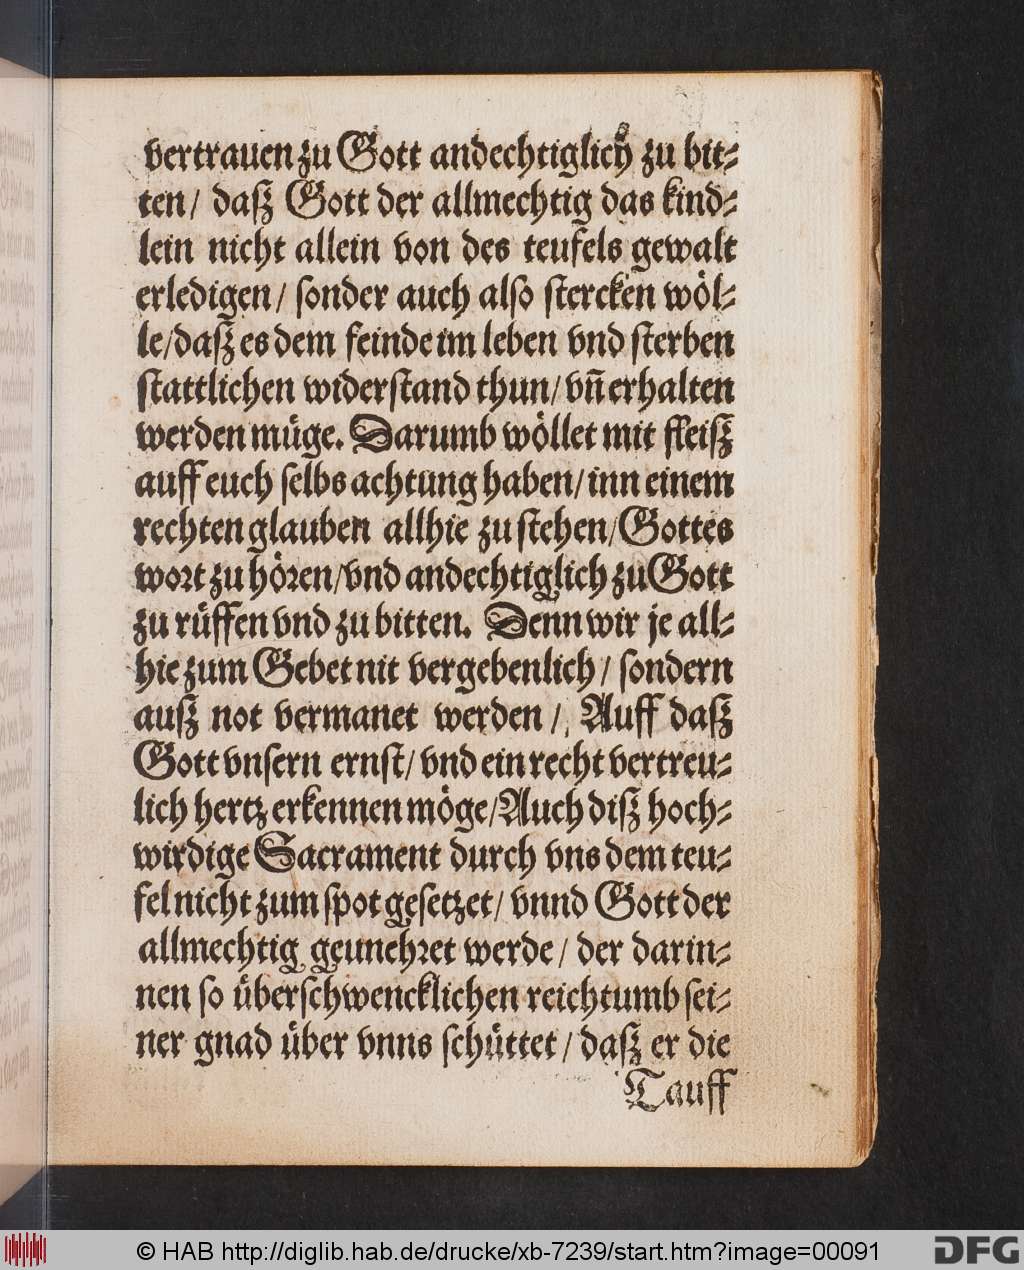 vertrauen zu Gott andechtiglich zu bit⸗
ten/ daß Gott der allmechtig das kind⸗
lein nicht allein von des teufels gewalt
erledigen/ sonder auch also stercken wöl⸗
le/daß es dem feinde im leben vnd sterben
stattlichen widerstand thun/ vñ erhalten
werden müge. Darumb wöllet mit fleiß
auff euch selbs achtung haben/ inn einem
rechten glauben allhie zu stehen/Gottes
wort zu hören/vnd andechtiglich zu Gott
zu rüffen vnd zu bitten. Denn wir je all⸗
hie zum Gebet nit vergebenlich/ sondern
auß not vermanet werden/, Auff daß
Gott vnsern ernst/ vnd ein recht vertreu⸗
lich hertz erkennen möge/Auch diß hoch⸗
wirdige Sacrament durch vns dem teu⸗
fel nicht zum spot gesetzet/ vnnd Gott der
allmechtig geunehret werde/ der darin⸗
nen so überschwencklichen reichtumb sei⸗
ner gnad über vnns schüttet/ daß er die
Tauff
© HAB http://diglib.hab.de/drucke/xb-7239/start.htm?image=00091
DFG